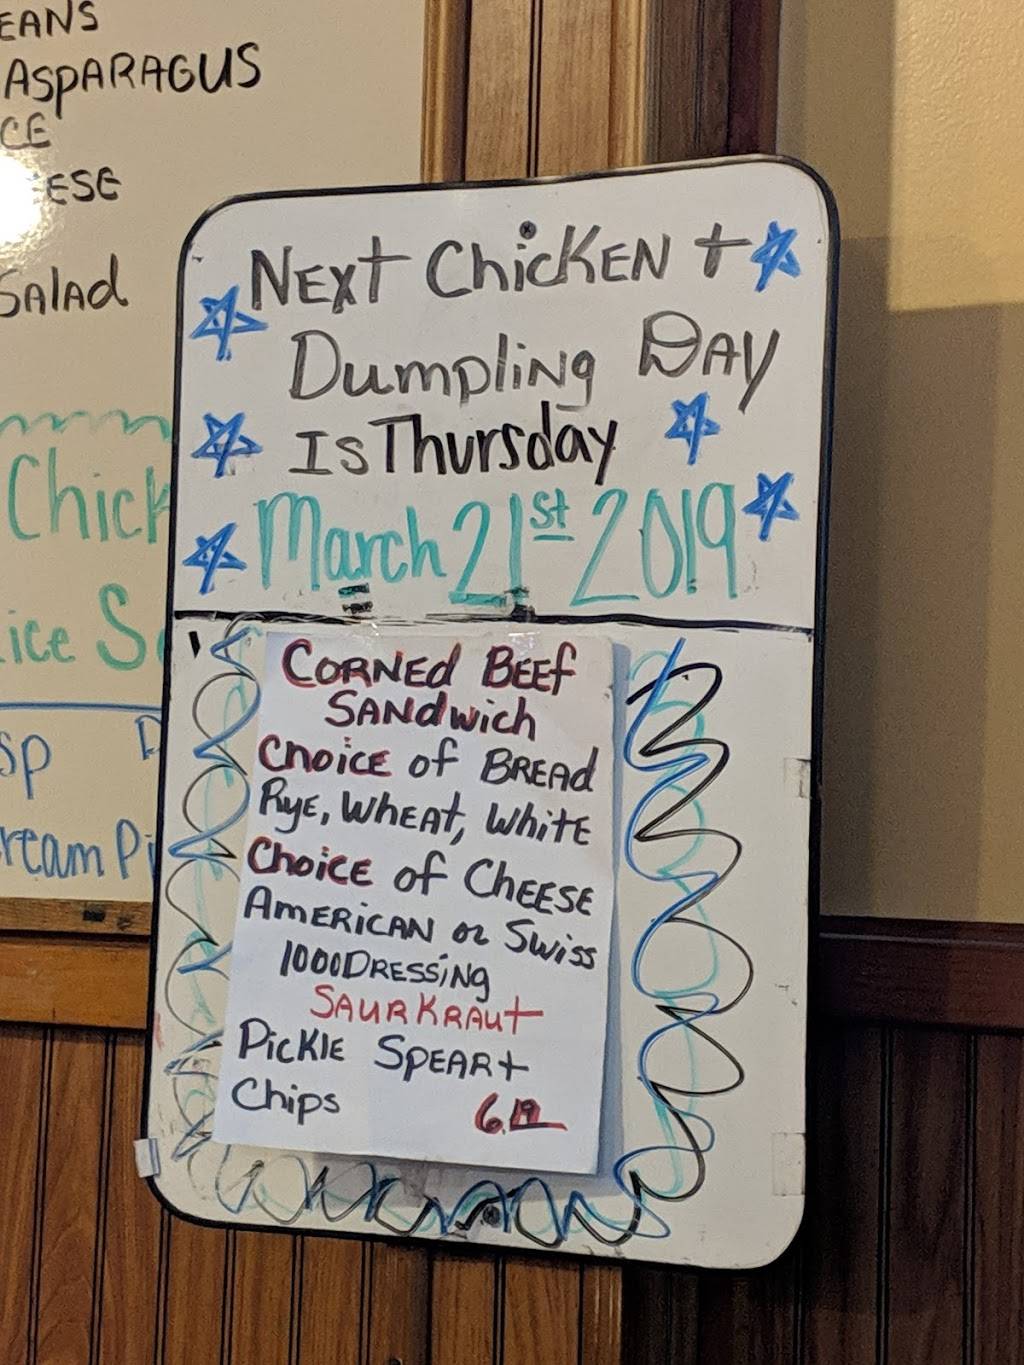 ASPARAGUS
Salad
NEXT ChicKEN +
Dumpling DAY
Is Thursday
March 21st 2019
CORNEd BEEf
SANdwich
Choice of BREAD
Rye, WHEAT, White
Choice of CHEESE
AMERICAN or Swiss
1000 DRESSiNg
SAURKRAUt
PickLE SPEAR +
Chips 6.19